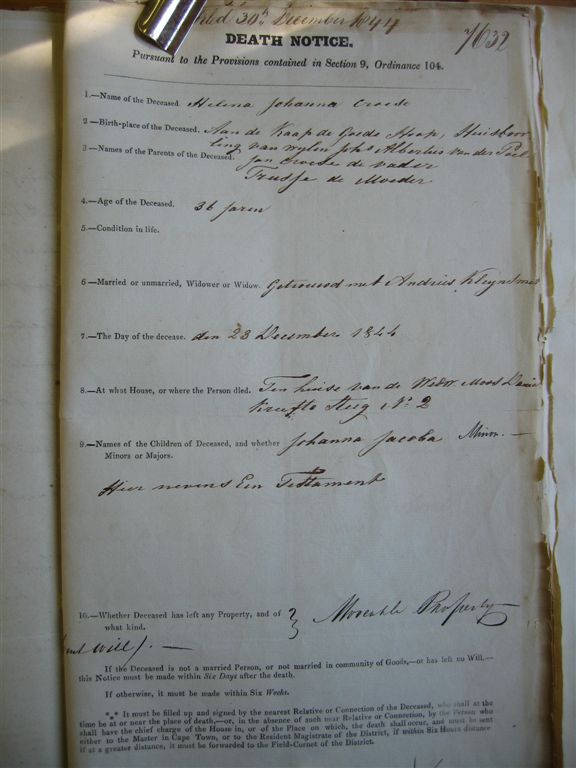 30th December 1844
7632
DEATH NOTICE.
Pursuant to the Provisions contained in Section 9, Ordinance 104.
1.—Name of the Deceased Helena Johanna Croese
2—Birth-place of the Deceased. Aan de Kaap de Goede Hoop,
van wylen Johs Albertus van der Poel
3—Names of the Parents of the Deceased. Jan Croese de vader
de Moeder
4.—Age of the Deceased. 36 Jaren
5.—Condition in life.
6—Married or unmarried, Widower or Widow. Getrouwd met Andries
7.—The Day of the decease. den 23 December 1844
8.—At what House, or where the Person died. Ten huise van de Wedw Moos
Steeg No 2
9.—Names of the Children of Deceased, and whether Johanna Jacoba Minor.—
Minors or Majors.
Hier nevens Een Testament
10.—Whether Deceased has left any Property, and of Moveable Property
what kind.
Will).—
If the Deceased is not a married Person, or not married in community of Goods,—or has left no Will.—
this Notice must be made within Six Days after the death.
If otherwise, it must be made within Six Weeks.
*** It must be filled up and signed by the nearest Relative or Connection of the Deceased, who shall at the
time be at or near the place of death,—or, in the absence of such near Relative or Connection, by the Person who
shall have the chief charge of the House in, or of the Place on which, the death shall occur, and must be sent
either to the Master in Cape Town, or to the Resident Magistrate of the District, if within Six Hours distance
if at a greater distance, it must be forwarded to the Field-Cornet of the District.